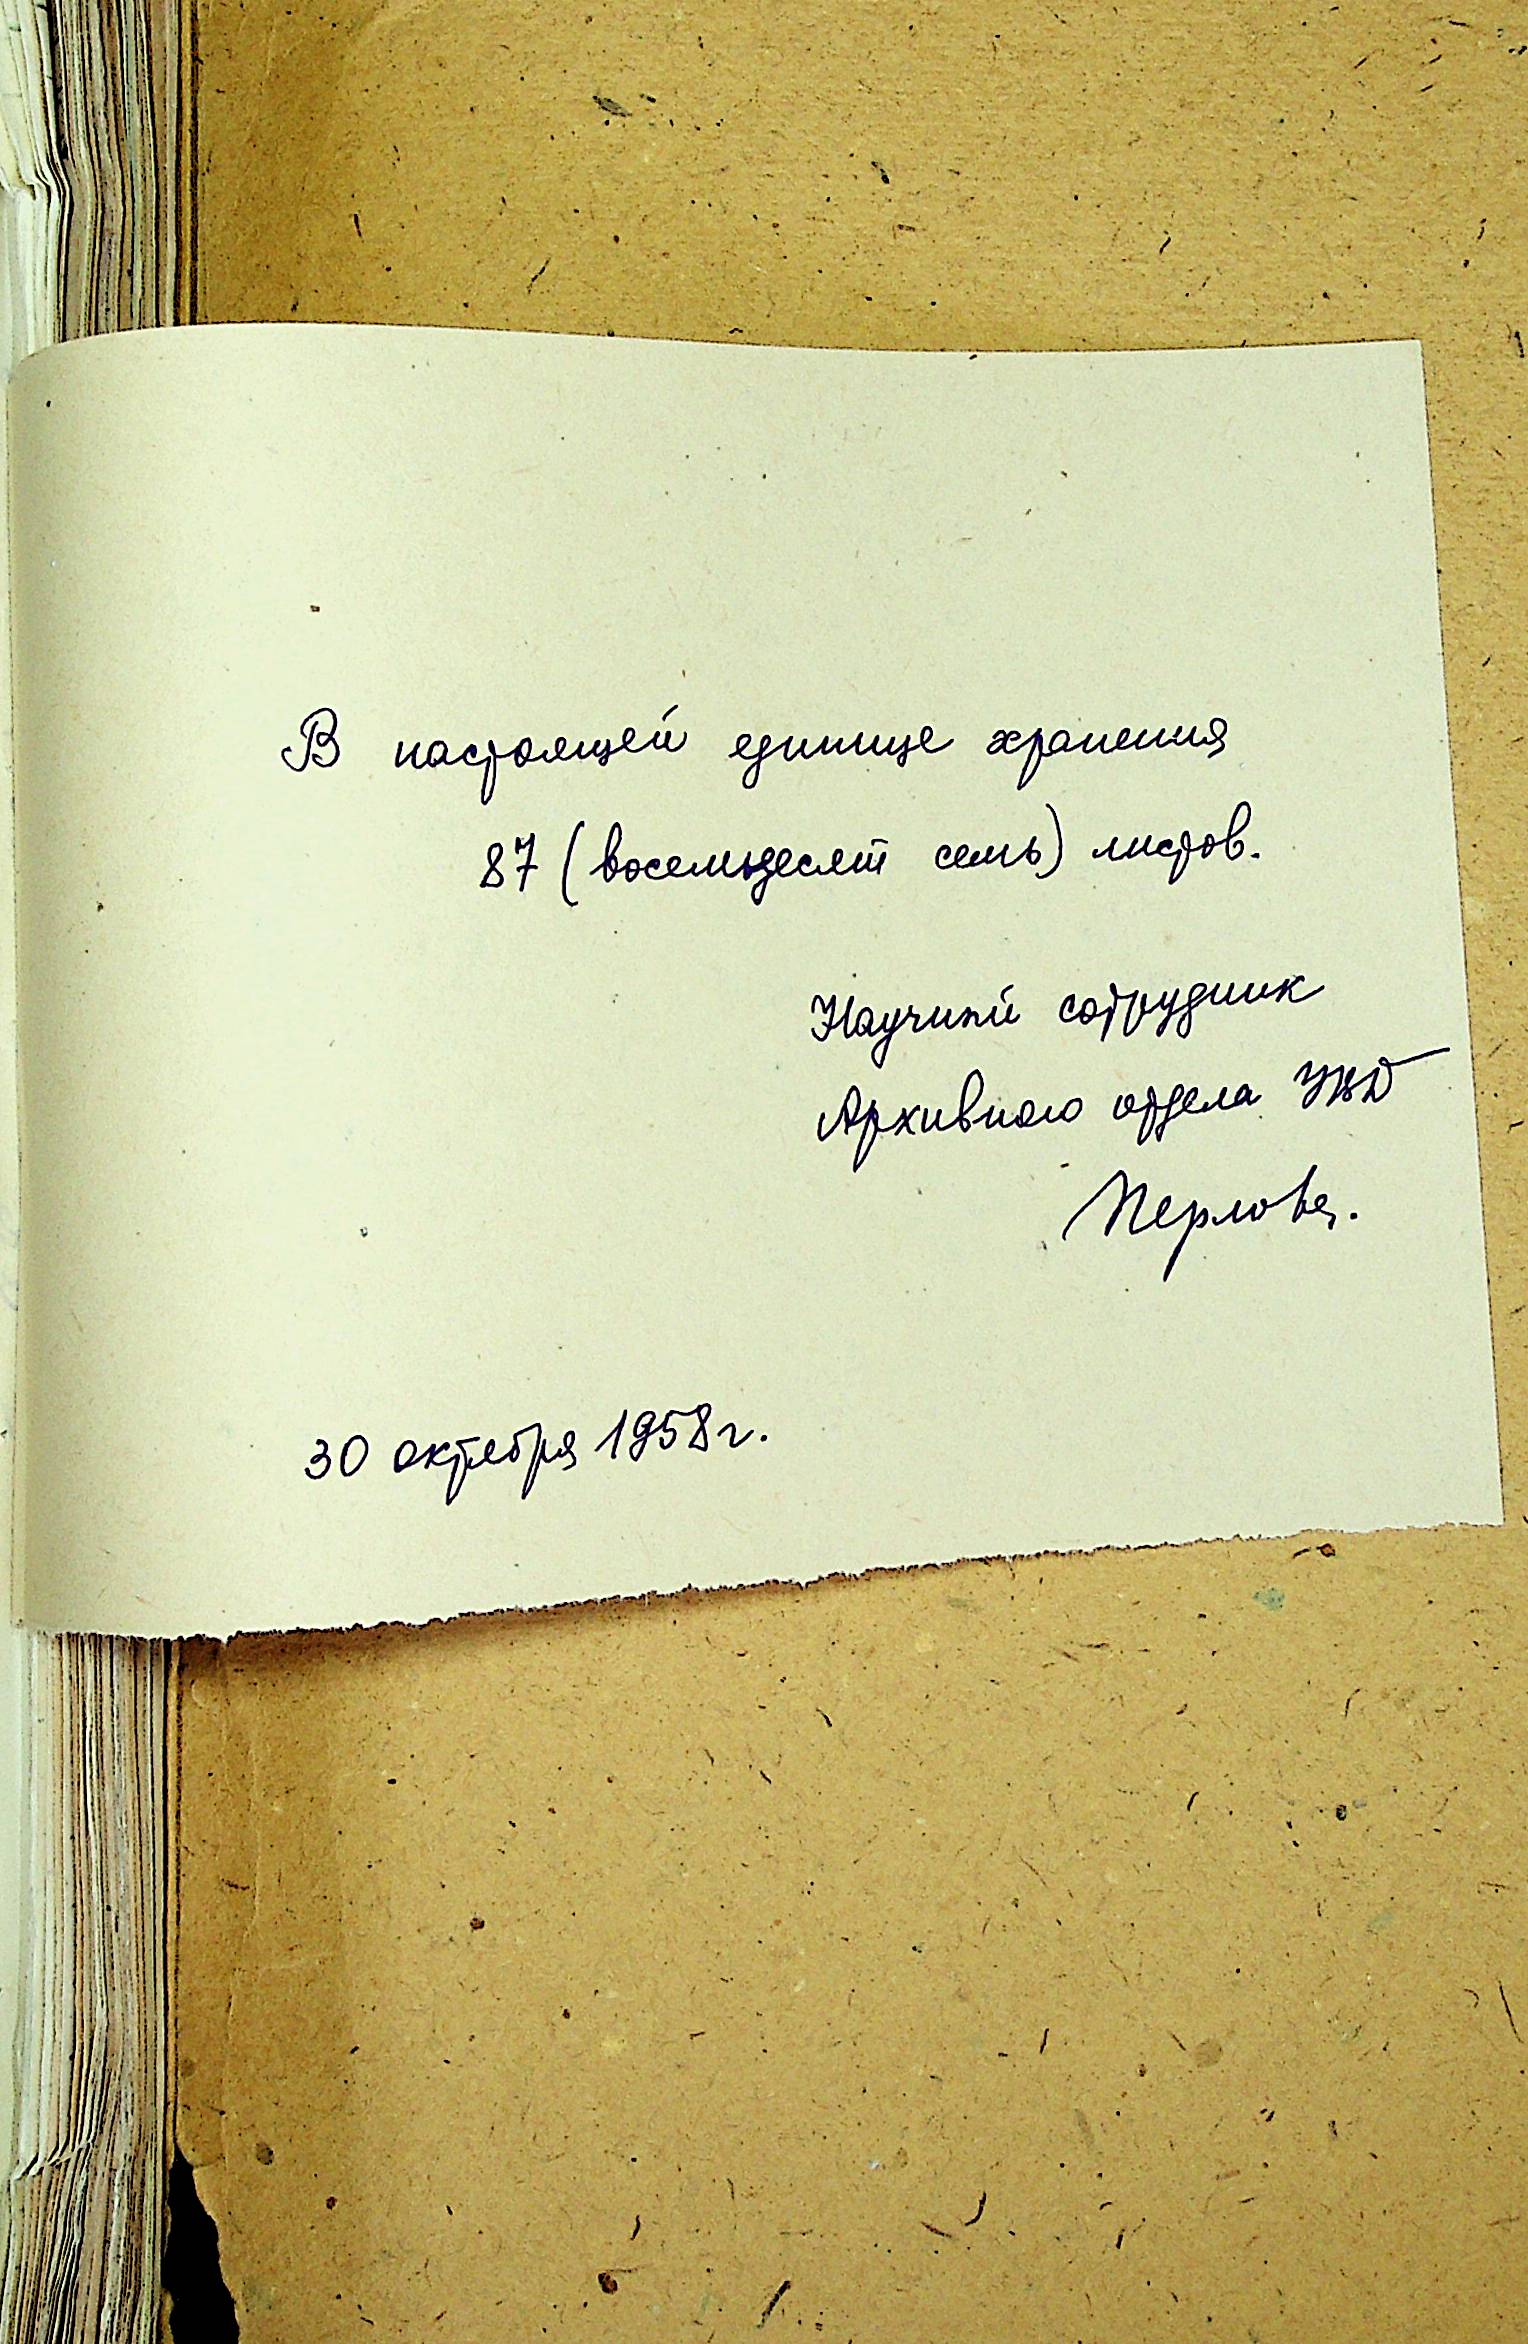 В настоящей единице хранения
87 (восемьдесят семь) листов.
Научный сотрудник
Архивного отдела УВД
Перлова.
30 октября 1958 г.